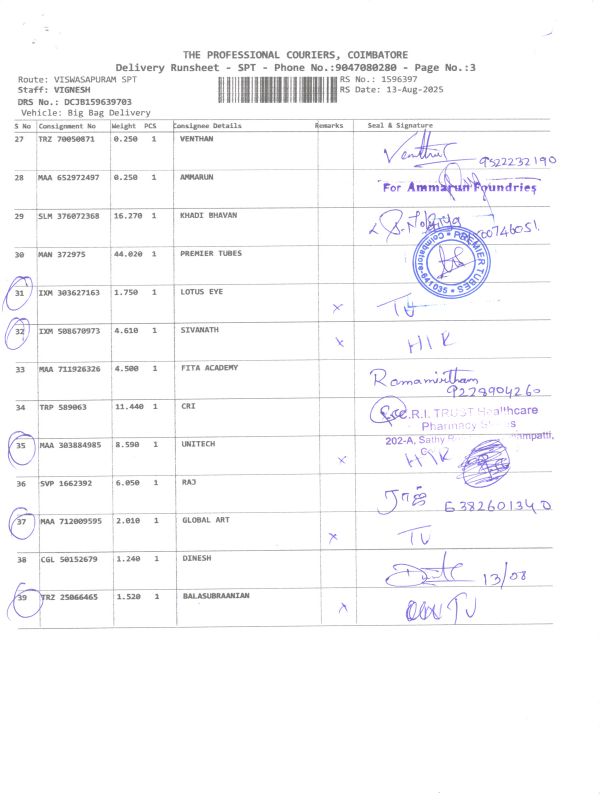 THE PROFESSIONAL COURIERS, COIMBATORE
Delivery Runsheet - SPT - Phone No.:9047080280 - Page No.:3
Route: VISWASAPURAM SPT RS No.: 1596397
Staff: VIGNESH RS Date: 13-Aug-2025
DRS No.: DCJB159639703
Vehicle: Big Bag Delivery
S No Consignment No Weight PCS Consignee Details Remarks Seal & Signature
27 TRZ 70050871 0.250 1 VENTHAN 9522232190
28 MAA 652972497 0.250 1 AMMARUN For Ammarun Foundries
29 SLM 376072368 16.270 1 KHADI BHAVAN
30 MAN 372975 44.020 1 PREMIER TUBES PREMIER TUBES Coimbatore-641035
31 IXM 303627163 1.750 1 LOTUS EYE x
32 IXM 508670973 4.610 1 SIVANATH x
33 MAA 711926326 4.500 1 FITA ACADEMY Ramamirtham
9228904260
34 TRP 589063 11.440 1 CRI C.R.I. TRUST Healthcare
Pharmacy
202-A, Sathy
35 MAA 303884985 8.590 1 UNITECH x
36 SVP 1662392 6.050 1 RAJ
37 MAA 712009595 2.010 1 GLOBAL ART x
38 CGL 50152679 1.240 1 DINESH 13/08
39 TRZ 25066465 1.520 1 BALASUBRAANIAN x